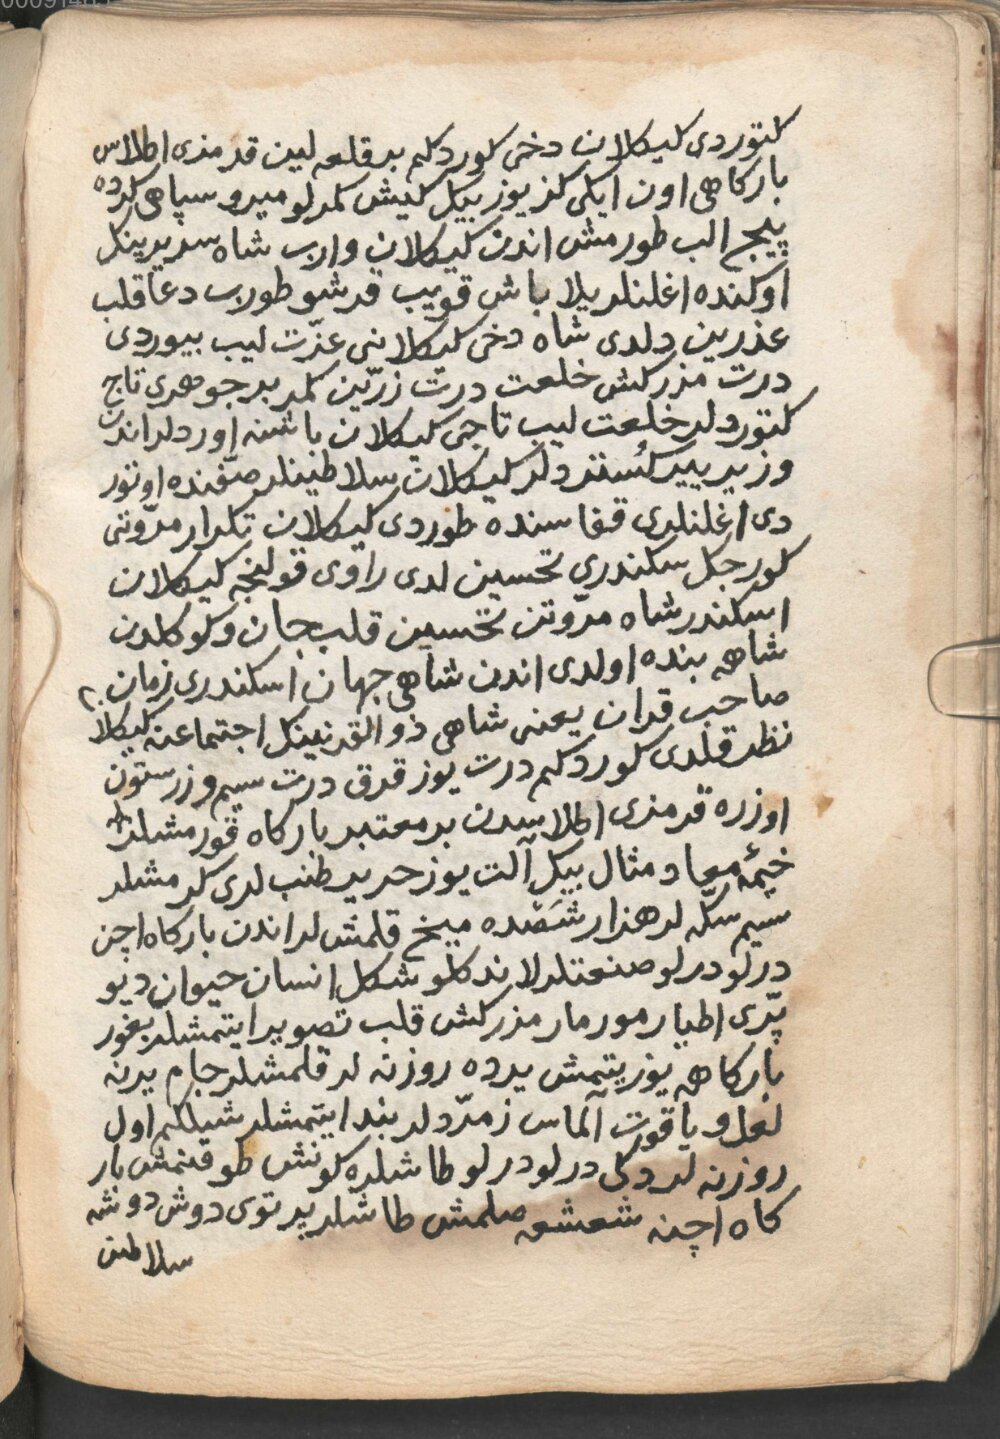 كتوردى كيكلان دخى كوردكم بر قلعه لين قرمزى اطلاس
باركاهى اون ايكى كز يوز بيك كيش كمرلو ميرو سپاهى كرده
پيچ الب طورمش اندن كيكلان وارب شاه سريرينك
اوكنده اغلنلريلا باش قويب قرشو طورب دعا قلب
عذرين دلدى شاه دخى كيكلانى عزّت ليب بيوردى
درت مزركش خلعت درت زرّين كمر بر جوهرى تاج
كتوردلر خلعت ليب تاجى كيكلان باشنه اوردلر اندن
وزير يير كُستردلر كيكلان سلاطينلر صفّنده اوتور
دى اغلنلرى قفاسنده طوردى كيكلان تكرار مروّتى
كورجك سكندرى تحسين لدى راوى قولنجه كيكلان
اسكندر شاه مروّتن تحسين قلب جان و كوكلدن
شاهه بنده اولدى اندن شاهى جهان اسكندرى زمان
صاحب قران يعنى شاهى ذو القرنينك اجتماعنه كيكلا
نظر قلدى كوردكم درت يوز قرق درت سيم و زر ستون
اوزره قرمزى اطلاسدن بر معتبر باركاه قورمشلر
خيمهٔ مثال بيك آلت يوز حرير طنب لرى كرمشلر
سيم سكّه لر هزار ششصده ميخ قلمش لر اندن باركاه اچن
درلو درلو صنعتلرلا ند كلو شكل انسان حيوان ديو
پرّى اطيار مور مار مزركش قلب تصوير ايتمشلر بغور
باركاهه يوز يتمش يرده روزنه لر قلمشلر جام يرنه
لعل و ياقوت آلماس زمرّدلر بند ايتمشلر شيلكم اول
روزنه لردكى درلو درلو طاشلره كونش طوقنمش بار
كاه اچنه شعشعه صلمش طاشلر پرتوى دوش دوشه
سلاطين